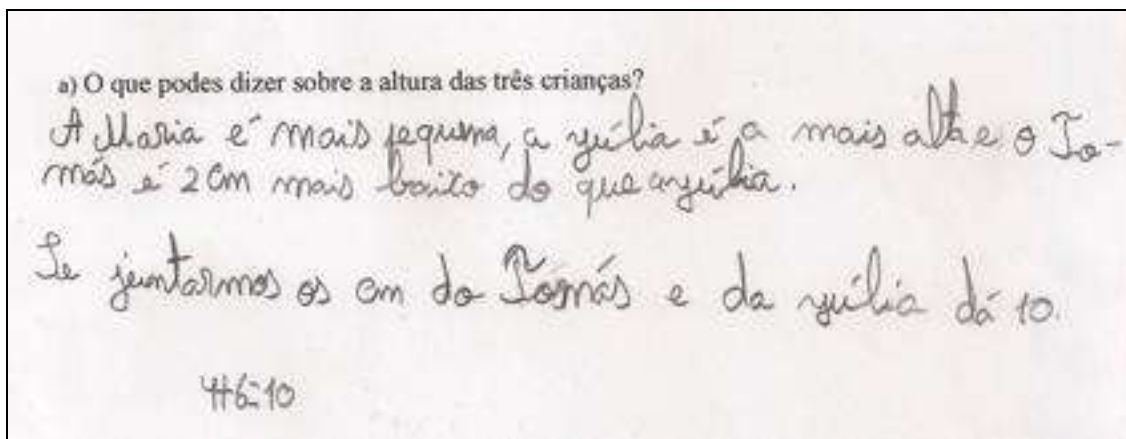 a) O que podes dizer sobre a altura das três crianças?
A Maria é mais pequena, a Júlia é a mais alta e o To-
más é 2 cm mais baixo do que a Júlia.
Se juntarmos os cm do Tomás e da Júlia dá 10.
4+6=10